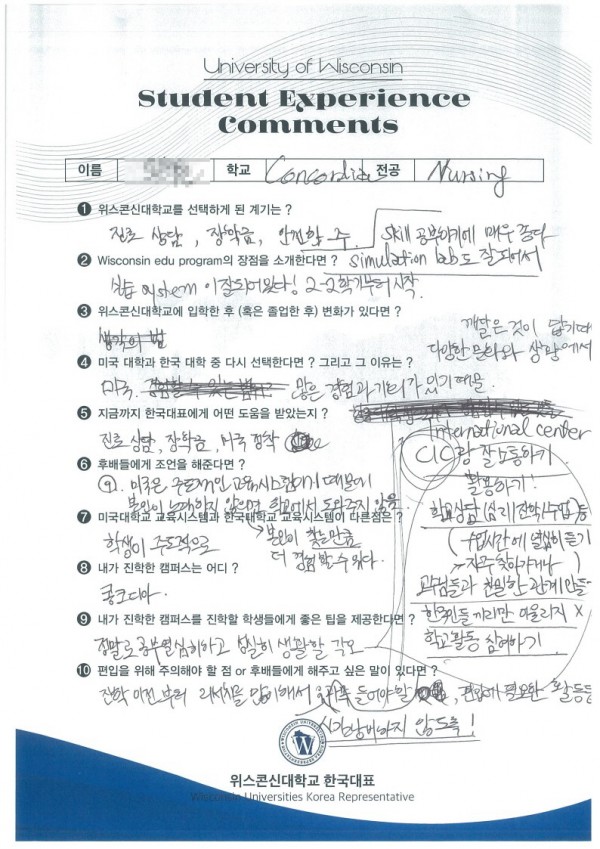 University of Wisconsin
Student Experience
Comments
이름 학교 Concordia 전공 Nursing
1 위스콘신대학교를 선택하게 된 계기는 ?
진로 상담, 장학금, 안전한 주.
2 Wisconsin edu program의 장점을 소개한다면 ?
skill 공부하기에 매우 좋다
simulation lab도 잘되어서
실습 이 잘되어있다! 2-2학기부터 시작.
3 위스콘신대학교에 입학한 후 (혹은 졸업한 후) 변화가 있다면 ?
생각의 범
깨달은 것이 많기때
다양한 문화와 상황에서
4 미국 대학과 한국 대학 중 다시 선택한다면 ? 그리고 그 이유는 ?
미국. 많은 경험과 기회가 있기 때문.
5 지금까지 한국대표에게 어떤 도움을 받았는지 ?
진로 상담, 장학금, 미국 정착
6 후배들에게 조언을 해준다면 ?
9. 미국은 주도적인 교육시스템이기 때문에
본인이 노력하지 않으면 학교에서 도와주지 않음.
7 미국대학교 교육시스템과 한국대학교 교육시스템이 다른점은 ?
학생이 주도적으로
본인이 찾는만큼
더 경험할 수 있다.
8 내가 진학한 캠퍼스는 어디 ?
콩코디아.
9 내가 진학한 캠퍼스를 진학할 학생들에게 좋은 팁을 제공한다면 ?
정말로 공부 열심히하고 성실히 생활할 각오
International center
CIC랑 잘 소통하기
활용하기!
학교상담 (심리/진학/수업) 등
(수업시간에 열심히 듣기
자주 찾아가거나)
교수님들과 친밀한 관계 만들
한국인들끼리만 어울리지 X
학교활동 참여하기
10 편입을 위해 주의해야 할 점 or 후배들에게 해주고 싶은 말이 있다면 ?
진학 이전부터 리서치를 많이해서 들어야할, 편입에 필요한 활동들
시간낭비하지 않도록!
위스콘신대학교 한국대표
Wisconsin Universities Korea Representative